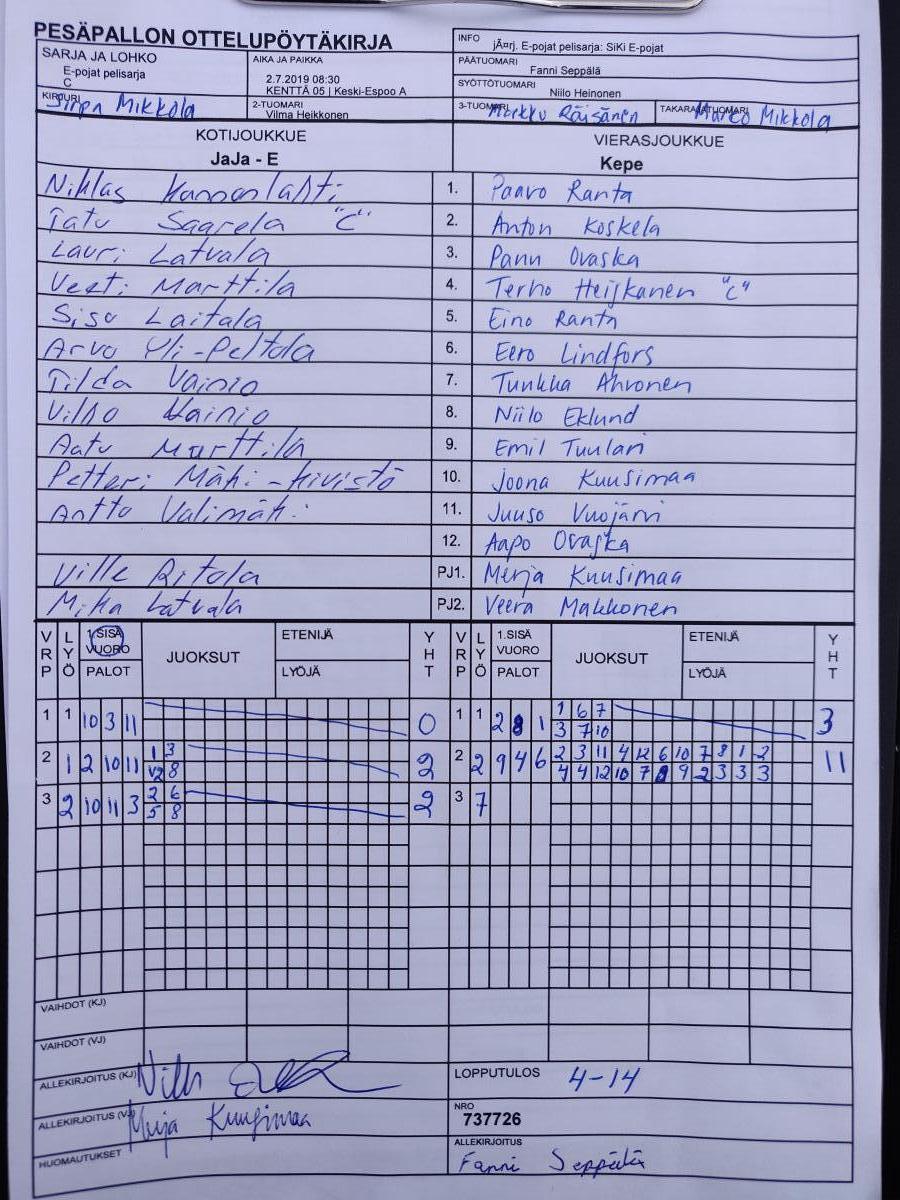 PESÄPALLON OTTELUPÖYTÄKIRJA
INFO jÃ¤rj. E-pojat pelisarja: SiKi E-pojat
SARJA JA LOHKO
E-pojat pelisarja
C
AIKA JA PAIKKA
2.7.2019 08:30
KENTTÄ 05 | Keski-Espoo A
PÄÄTUOMARI Fanni Seppälä
SYÖTTÖTUOMARI Niilo Heinonen
KIRJURI Mikkola
2-TUOMARI Vilma Heikkonen
3-TUOMARI Markku Räisänen
TAKARAJATUOMARI Marko Mikkola
KOTIJOUKKUE
JaJa - E
VIERASJOUKKUE
Kepe
Niklas 1. Paavo Ranta
Tatu Saarela "C" 2. Anton Koskela
Lauri Latvala 3. Panu Ovaska
Veeti Marttila 4. Terho Heiskanen "C"
Sisu Laitala 5. Eino Ranta
Arvo Yli-Peltola 6. Eero Lindfors
Tilda Vainio 7. Tuukka Ahvonen
Vilho Vainio 8. Niilo Eklund
Aatu Marttila 9. Emil Tuulari
Petteri Mäki-Kivistö 10. Joona Kuusimaa
Antto Välimäki 11. Juuso Vuojärvi
12. Aapo Ovaska
Ville Ritola PJ1. Merja Kuusimaa
Mika Latvala PJ2. Veera Makkonen
VRP LYÖ 1.SISÄ VUORO PALOT JUOKSUT ETENIJÄ LYÖJÄ YHT VRP LYÖ 1.SISÄ VUORO PALOT JUOKSUT ETENIJÄ LYÖJÄ YHT
1 1 10 3 11 0 1 1 2 8 1 1 6 7 3
3 7 10
2 1 2 10 11 1 3 2 2 2 9 4 6 2 3 11 4 12 6 10 7 8 1 2 11
8 4 4 12 10 7 9 2 3 3 3
3 2 10 11 3 2 6 2 3 7
5 8
VAIHDOT (KJ)
VAIHDOT (VJ)
ALLEKIRJOITUS (KJ)
LOPPUTULOS 4-14
ALLEKIRJOITUS (VJ) Merja Kuusimaa
NRO
737726
HUOMAUTUKSET
ALLEKIRJOITUS
Fanni Seppälä